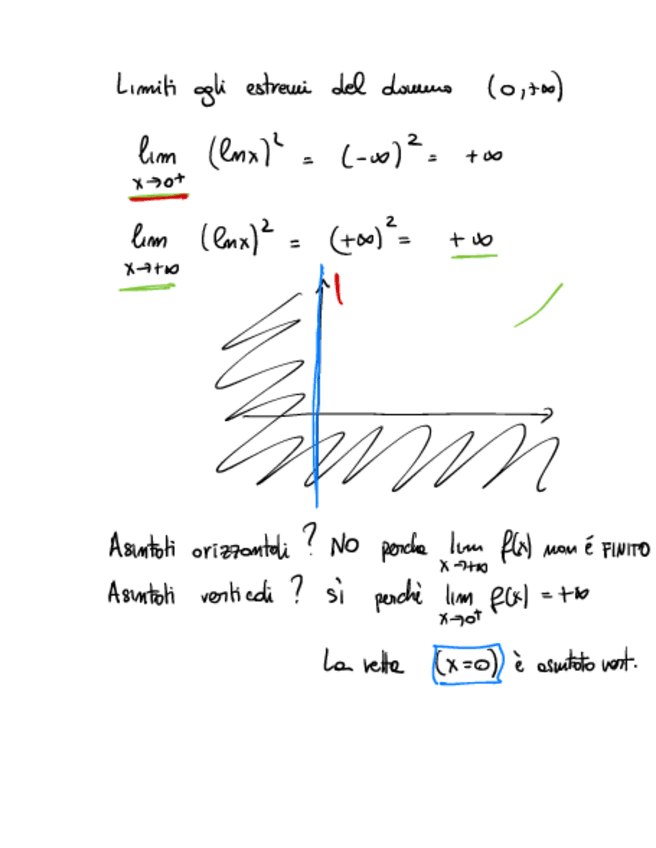 Limiti agli estremi del dominio (0,+∞)
lim x→0⁺ (ln x)² = (-∞)² = +∞
lim x→+∞ (ln x)² = (+∞)² = +∞
Asintoti orizzontali? NO perché lim x→+∞ f(x) non é FINITO
Asintoti verticali? sì perchè lim x→0⁺ f(x) = +∞
La retta (x=0) è asintoto vert.